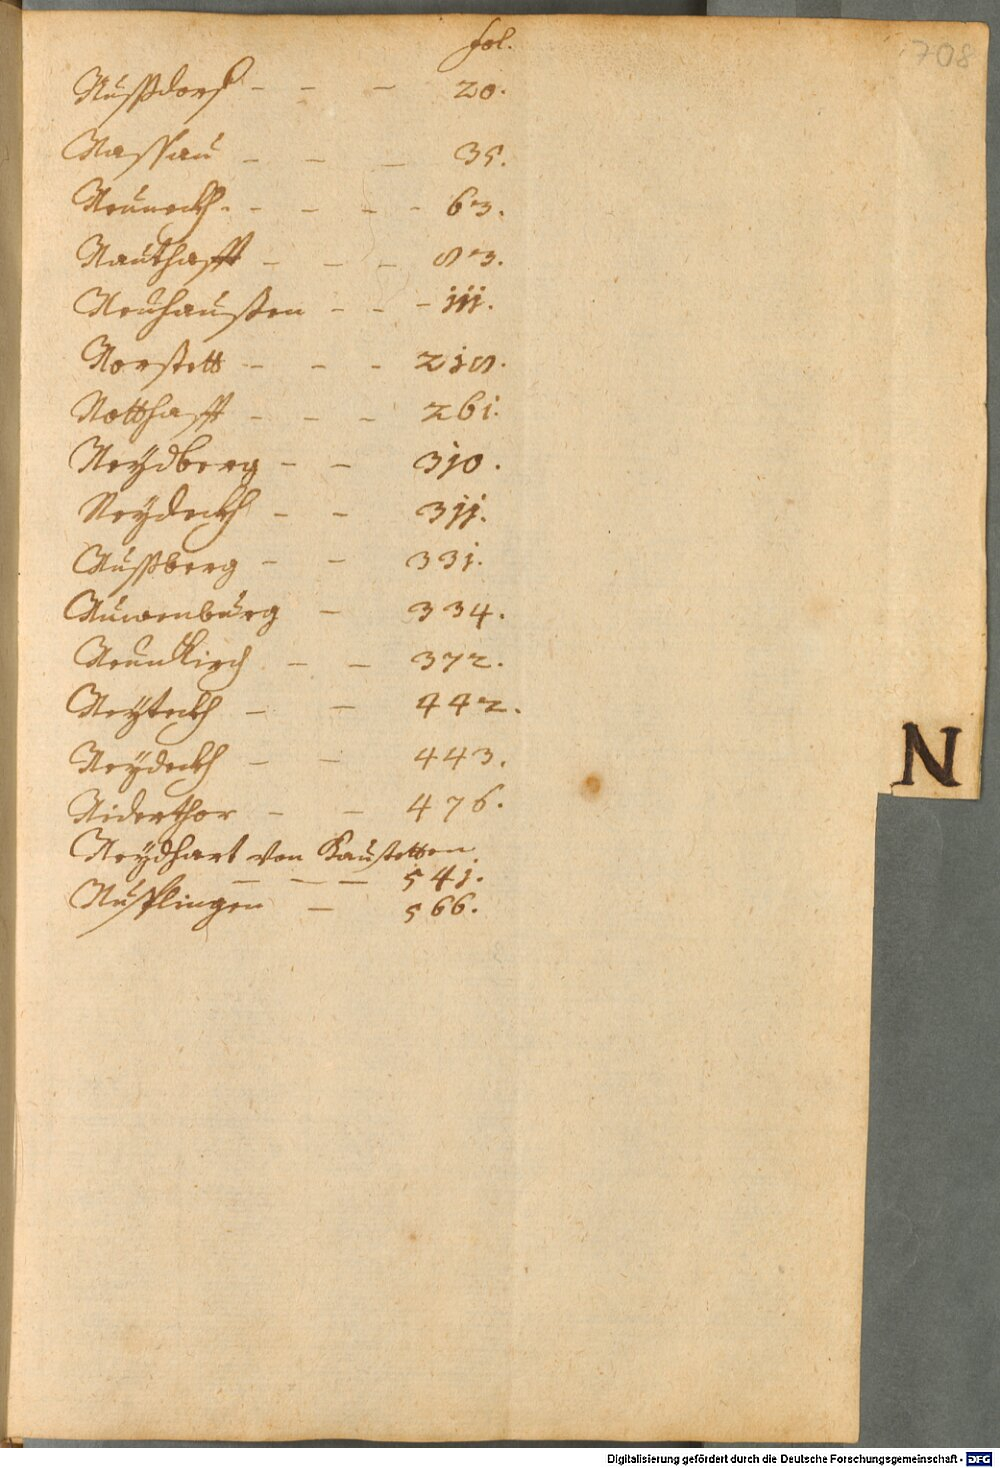 fol.
708
Nußdorf - - - 20.
Nassau - - - 35.
Neuneckh - - - - - 63.
Nauthafft - - - 83.
Neuhaußen - - - jjj.
Norstett - - - 2j8.
Notthafft - - - 26j.
Neydberg - - 3j0.
Neydeckh - - 3jj.
Nußberg - - 33j.
Nüwenburg - 334.
Neunkirch - - 372.
Neyteckh - - 442.
Neydeckh - - 443.
Niderthor - - 476.
Neydhart von Baustetten
- - - 54j.
Nusplingen - 566.
N
Digitalisierung gefördert durch die Deutsche Forschungsgemeinschaft - DFG